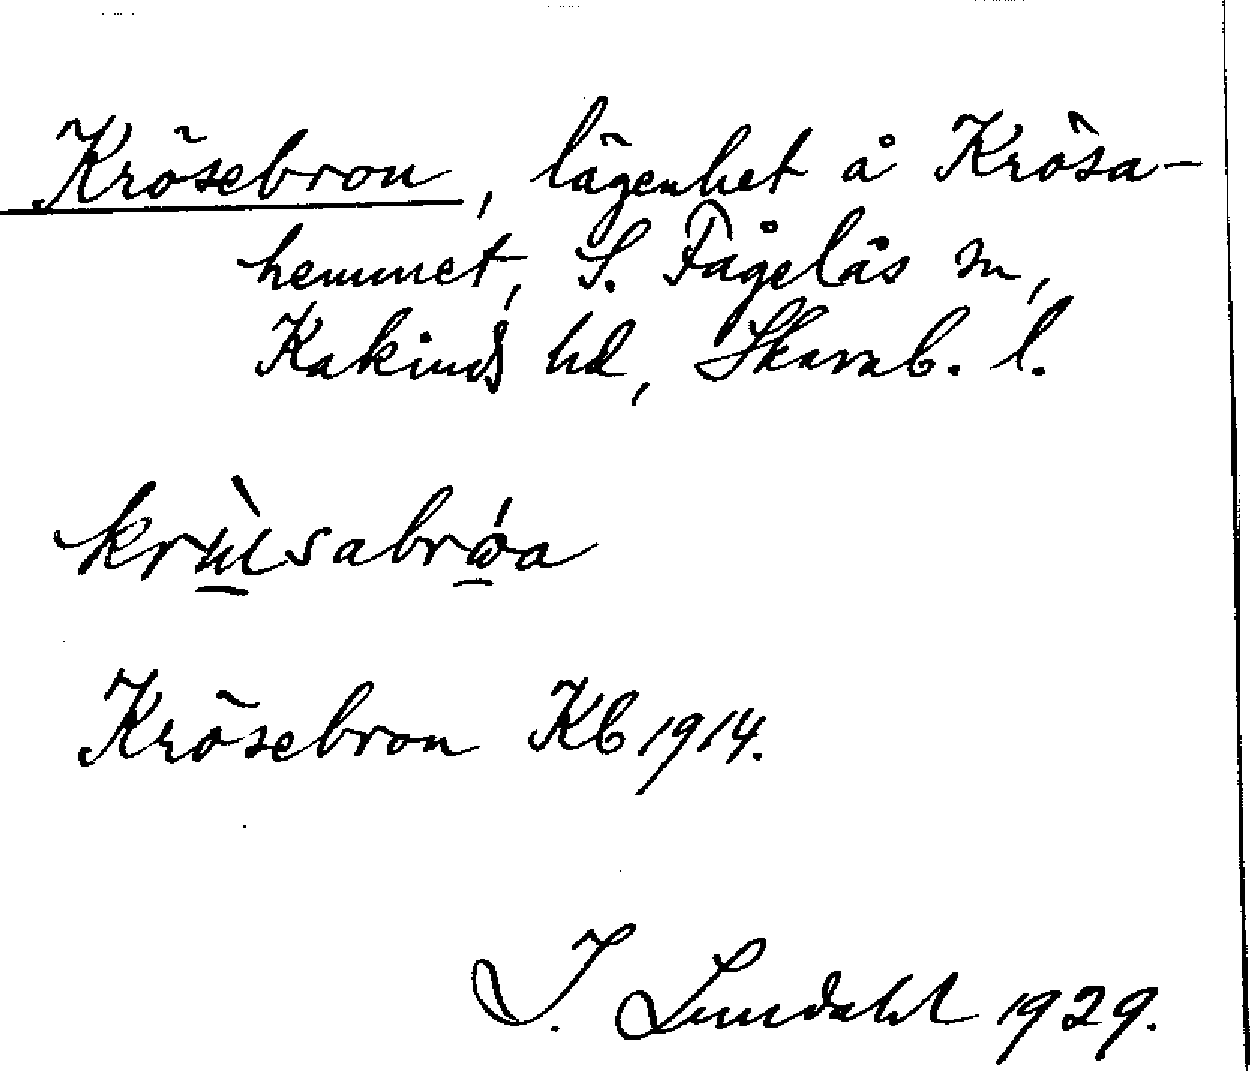 Krösebron, lägenhet å Krösa-
hemmet, S. Fågelås sn,
Kakinds hd, Skarab. l.
Krösebron Kb 1914.
I. Lundahl 1929.